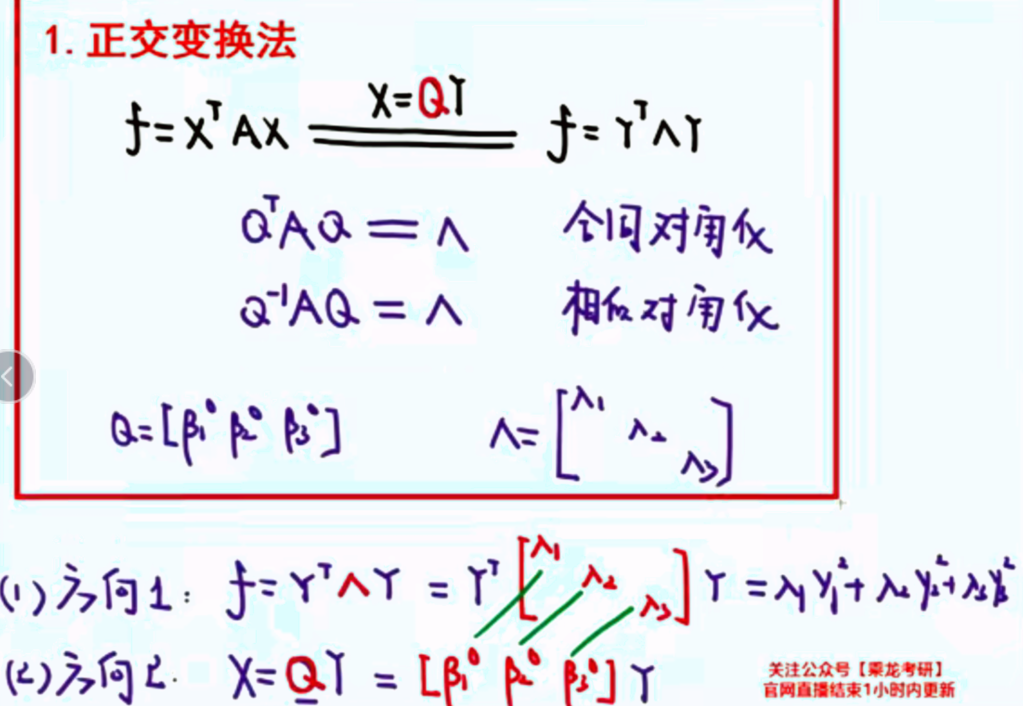 1. 正交变换法
f=XᵀAX X=QY f=YᵀΛY
QᵀAQ=Λ 合同对角化
Q⁻¹AQ=Λ 相似对角化
Q=[β₁⁰ β₂⁰ β₃⁰] Λ=[λ₁ λ₂ λ₃]
(1)方向1: f=YᵀΛY=Yᵀ[λ₁ λ₂ λ₃]Y=λ₁y₁²+λ₂y₂²+λ₃y₃²
(2)方向2. X=QY=[β₁⁰ β₂⁰ β₃⁰]Y
关注公众号【乘龙考研】
官网直播结束1小时内更新